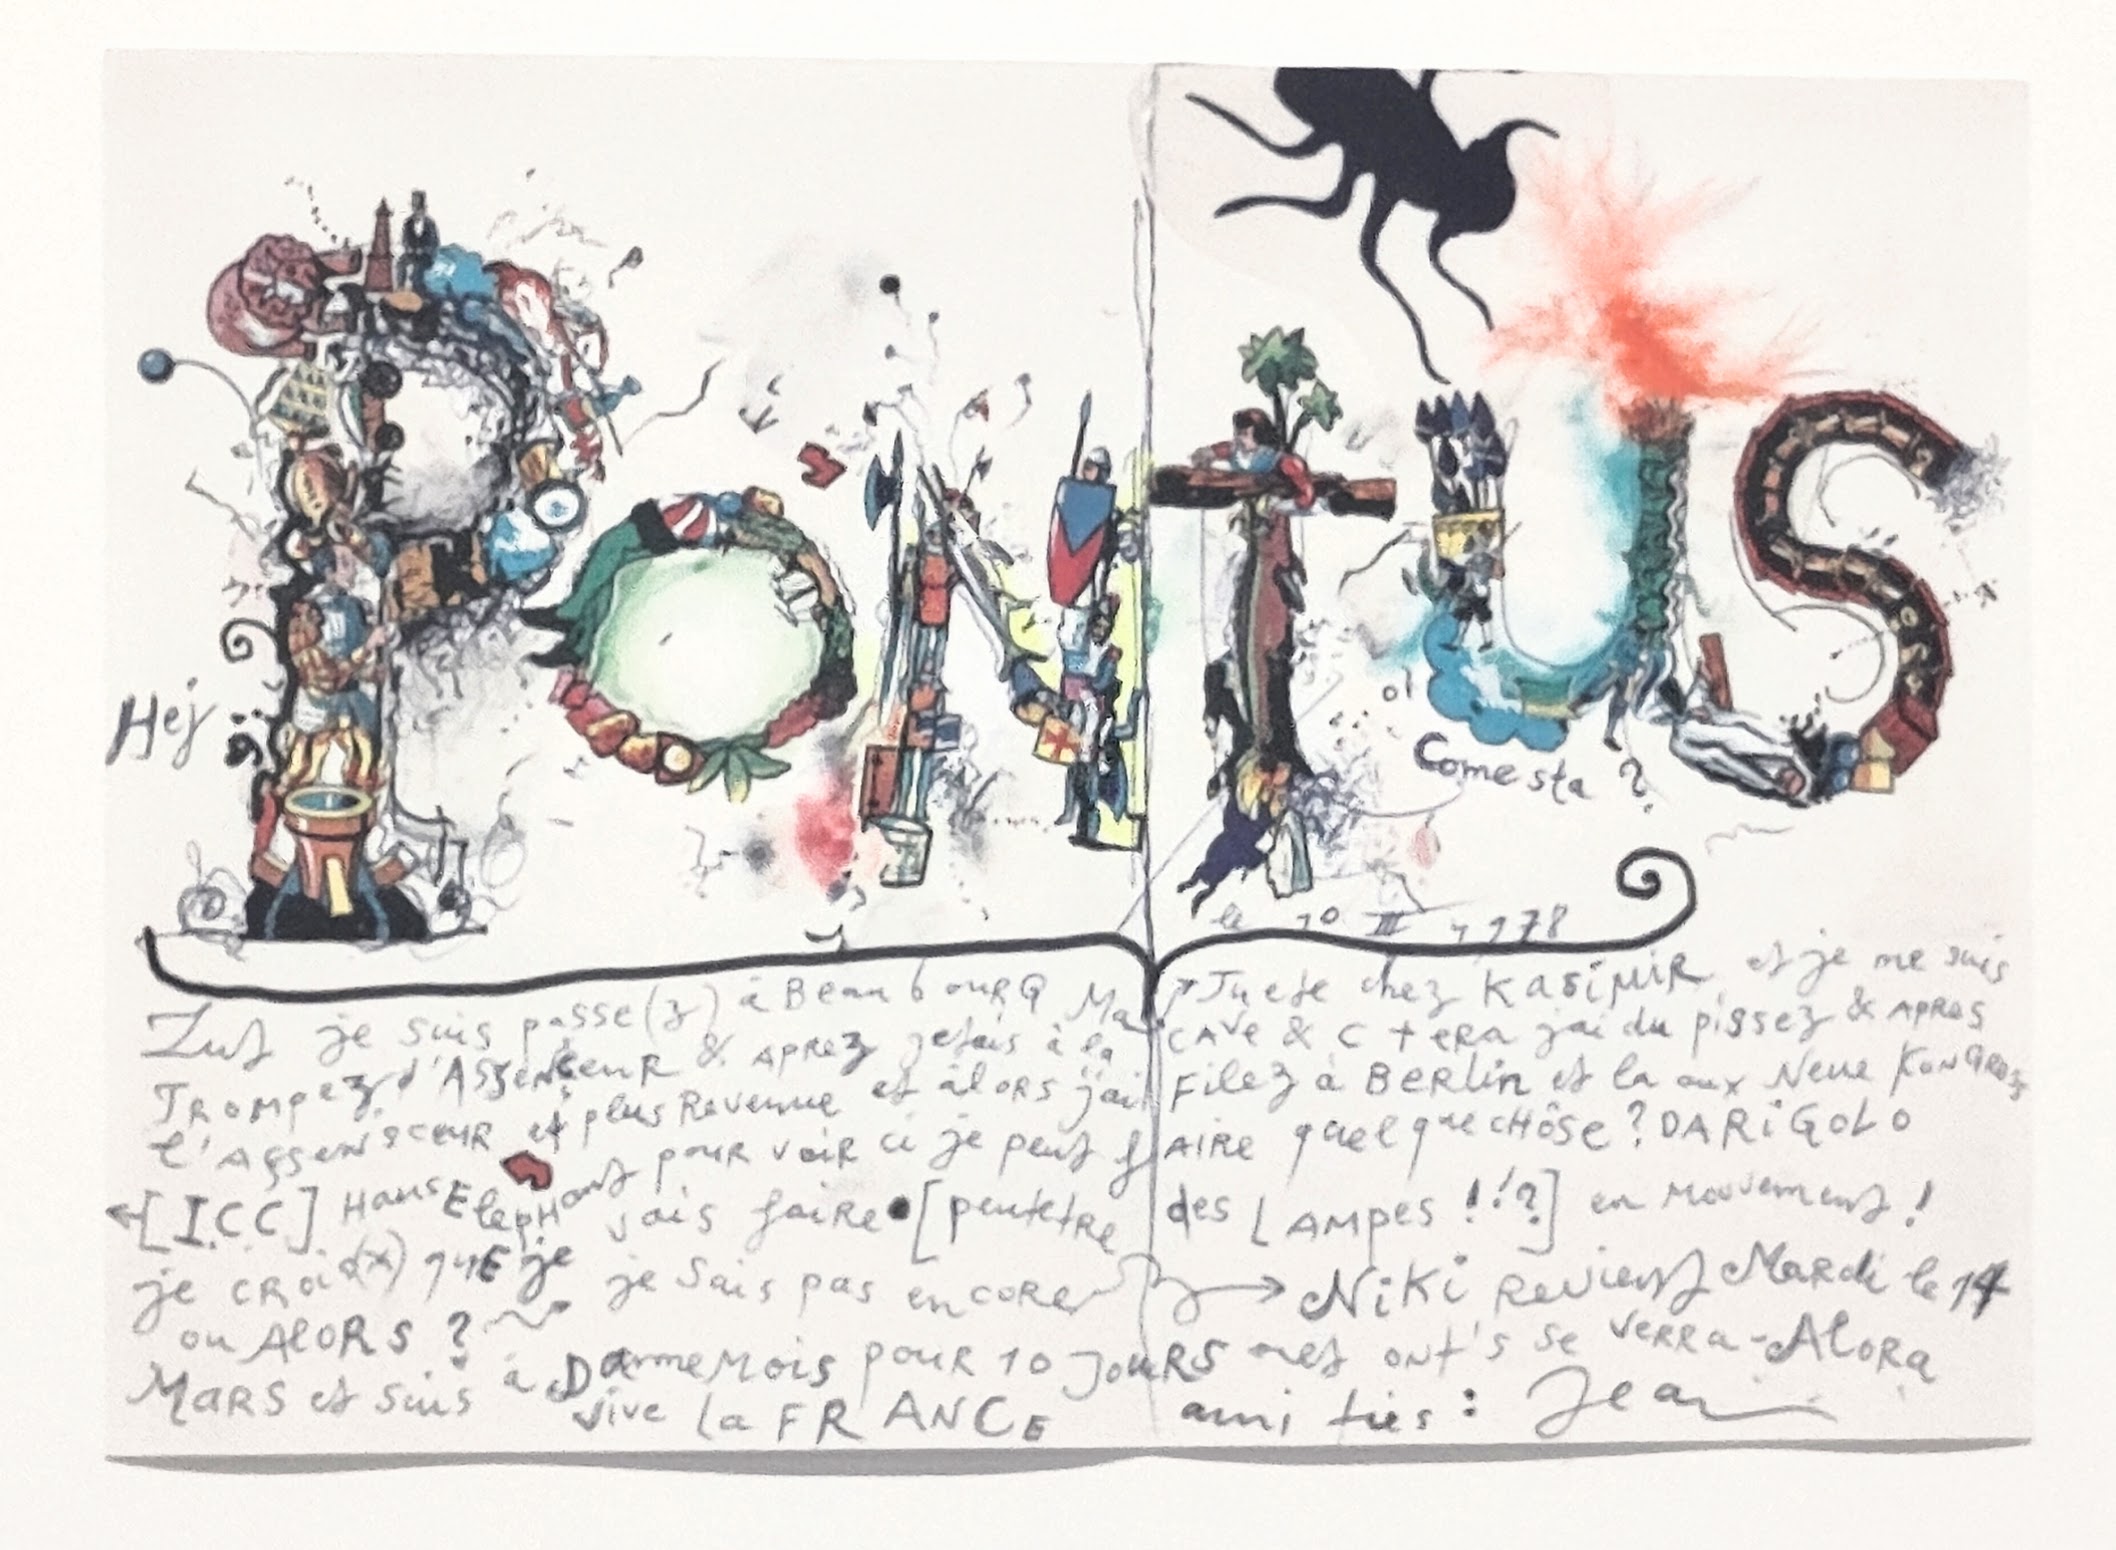 PONTUS
Hej
Come sta ?
le 10 III 1978
Zut je suis passe(z) à BeaubouRG Ma Tuete chez KasiMIR et je me suis
TRompez d'AssenseuR & APRez jetais à la CAVe & C t ERA jai du pissez & APRes
l'Assen sceuR et plus Revenue et âloRs jai Filez à BeRlin et la aux Neue KonGRez
[I.C.C] Haus ElepHant pour voir ci je peut fAIRE quelque cHôse ? DARiGoLo
je CRoi d(x) quE je vais faire [peutetRe des LAMpes !!?] en Mouvement !
ou AloRs ? je Sais pas encore Niki Revient Mardi le 14
MaRS et suis à DarmeMois pour 10 JouRS et ont's se verra-Alora
vive la FRANCE amities : Jean